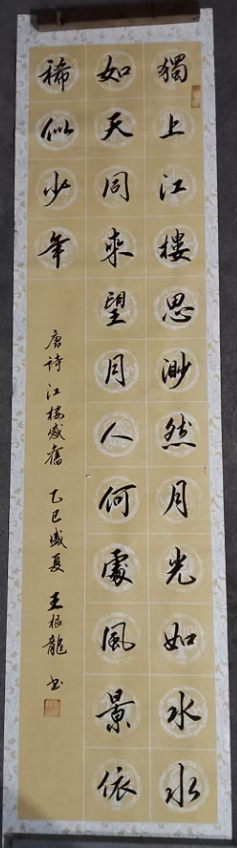 獨上江樓思渺然月光如水水
如天同來望月人何處風景依
稀似少年
唐诗江楼感舊 乙巳盛夏 王根龍 书